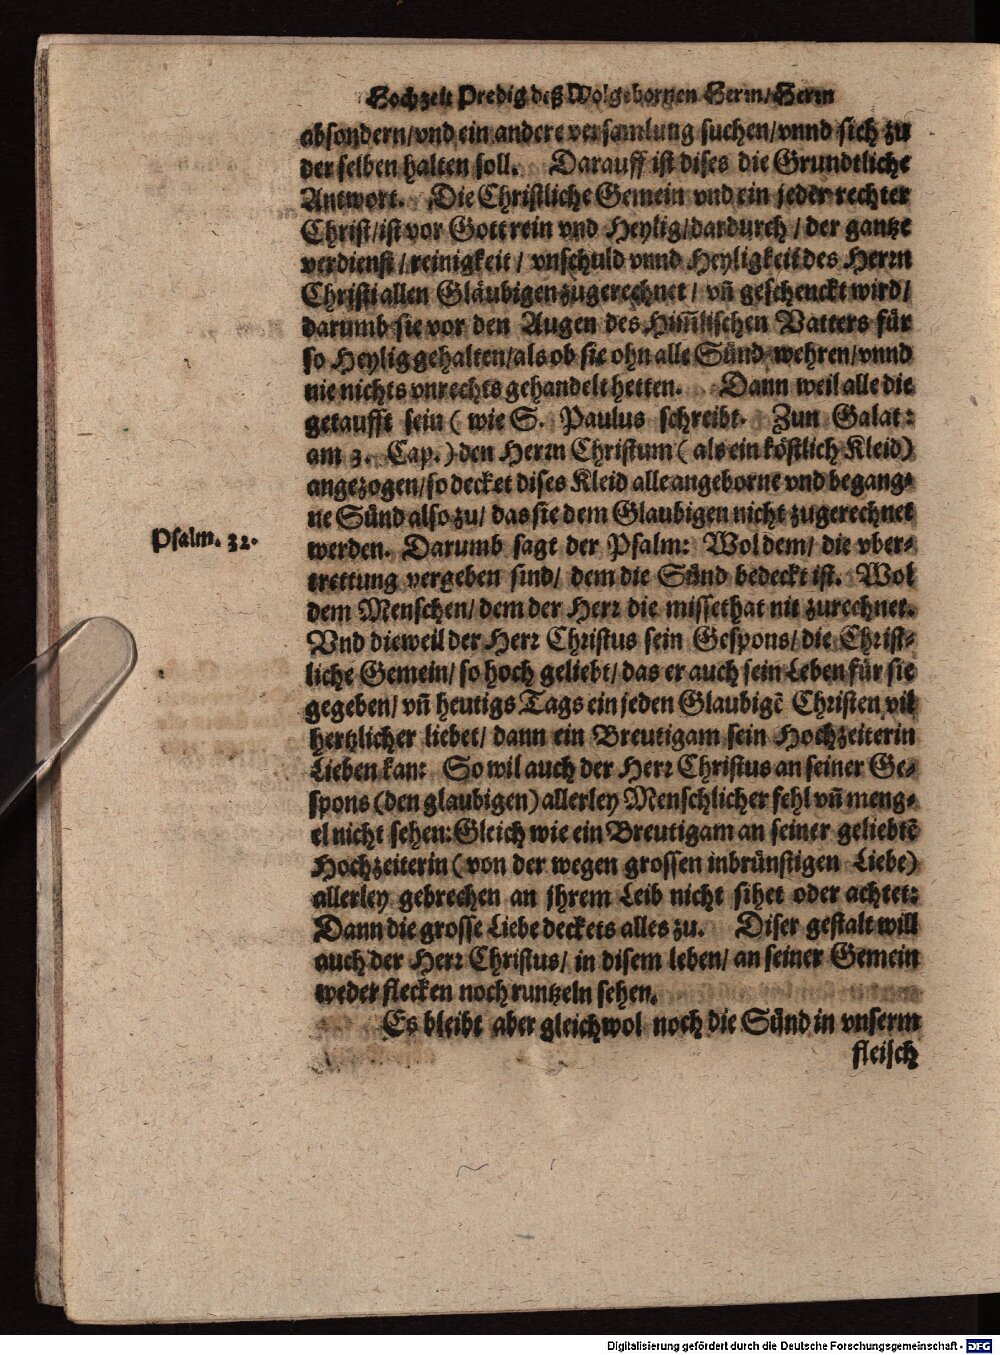 Hochzeit Predig deß Wolgebornen Herrn/Herrn
absondern/vnd ein andere versamlung suchen/vnnd sich zu
der selben halten soll. Darauff ist dises die Grundtliche
Antwort. Die Christliche Gemein vnd ein jeder rechter
Christ/ist vor Gott rein vnd Heylig/dardurch/der gantze
verdienst/reinigkeit/vnschuld vnnd Heyligkeit des Herrn
Christi allen Gläubigen zugerechnet/vñ geschenckt wird/
darumb sie vor den Augen des Him̃lischen Vatters für
so Heylig gehalten/als ob sie ohn alle Sünd wehren/vnnd
nie nichts vnrechts gehandelt hetten. Dann weil alle die
getaufft sein (wie S. Paulus schreibt. Zun Galat:
am 3. Cap.) den Herrn Christum (als ein köstlich Kleid)
angezogen/so decket dises Kleid alle angeborne vnd begang-
ne Sünd also zu/das sie dem Glaubigen nicht zugerechnet
Psalm. 32.
werden. Darumb sagt der Psalm: Wol dem/die vber-
trettung vergeben sind/dem die Sünd bedeckt ist. Wol
dem Menschen/dem der Herr die missethat nit zurechnet.
Vnd dieweil der Herr Christus sein Gespons/die Christ-
liche Gemein/so hoch geliebt/das er auch sein Leben für sie
gegeben/vñ heutigs Tags ein jeden Glaubigẽ Christen vil
hertzlicher liebet/dann ein Breutigam sein Hochzeiterin
Lieben kan: So wil auch der Herr Christus an seiner Ge-
spons (den glaubigen) allerley Menschlicher fehl vñ meng-
el nicht sehen: Gleich wie ein Breutigam an seiner geliebtẽ
Hochzeiterin (von der wegen grossen inbrünstigen Liebe)
allerley gebrechen an jhrem Leib nicht sihet oder achtet:
Dann die grosse Liebe deckets alles zu. Diser gestalt will
auch der Herr Christus/in disem leben/an seiner Gemein
weder flecken noch runtzeln sehen.
Es bleibt aber gleichwol noch die Sünd in vnserm
fleisch
Digitalisierung gefördert durch die Deutsche Forschungsgemeinschaft - DFG